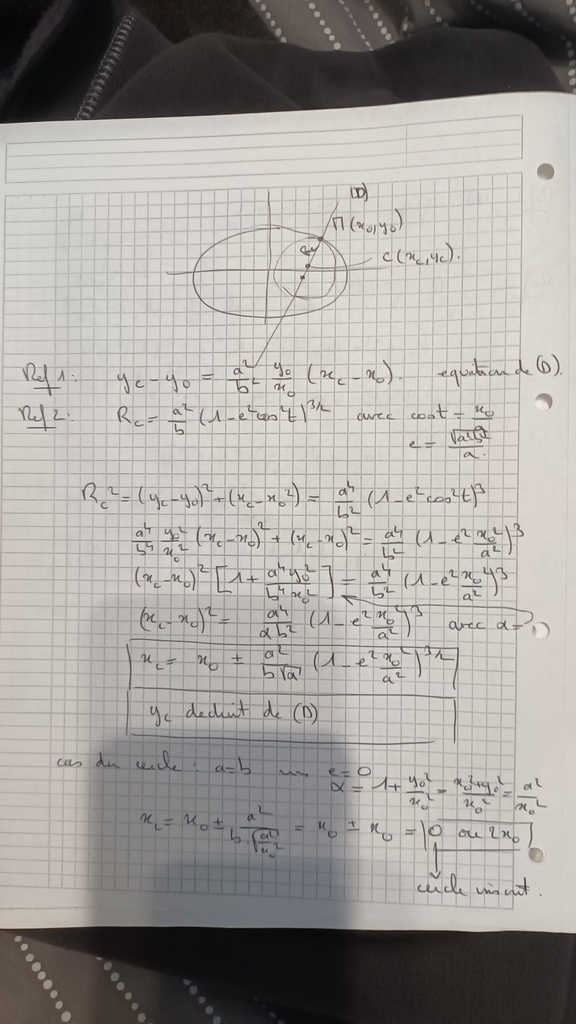 (D)
M(x₀,y₀)
C(x_c,y_c).
Ref 1: y_c - y₀ = a²/b² y₀/x₀ (x_c - x₀). equation de (D).
Ref 2: R_c = a²/b (1 - e²cos²t)^3/2 avec cost = x₀
e = √(a²-b²)/a.
R_c² = (y_c - y₀)² + (x_c - x₀²) = a⁴/b² (1 - e²cos²t)³
a⁴/b⁴ y₀²/x₀² (x_c - x₀)² + (x_c - x₀)² = a⁴/b² (1 - e² x₀²/a²)³
(x_c - x₀)² [1 + a⁴y₀²/b⁴x₀²] = a⁴/b² (1 - e² x₀²/a²)³
(x_c - x₀)² = a⁴/αb² (1 - e² x₀²/a²)³ avec α =
x_c = x₀ ± a²/b√α (1 - e² x₀²/a²)^3/2
y_c deduit de (D)
cas du cercle : a=b e = 0
α = 1 + y₀²/x₀² = x₀²+y₀²/x₀² = a²/x₀²
x_c = x₀ ± a²/b√(a²/x₀²) = x₀ ± x₀ = 0 ou 2x₀
cercle inscrit.